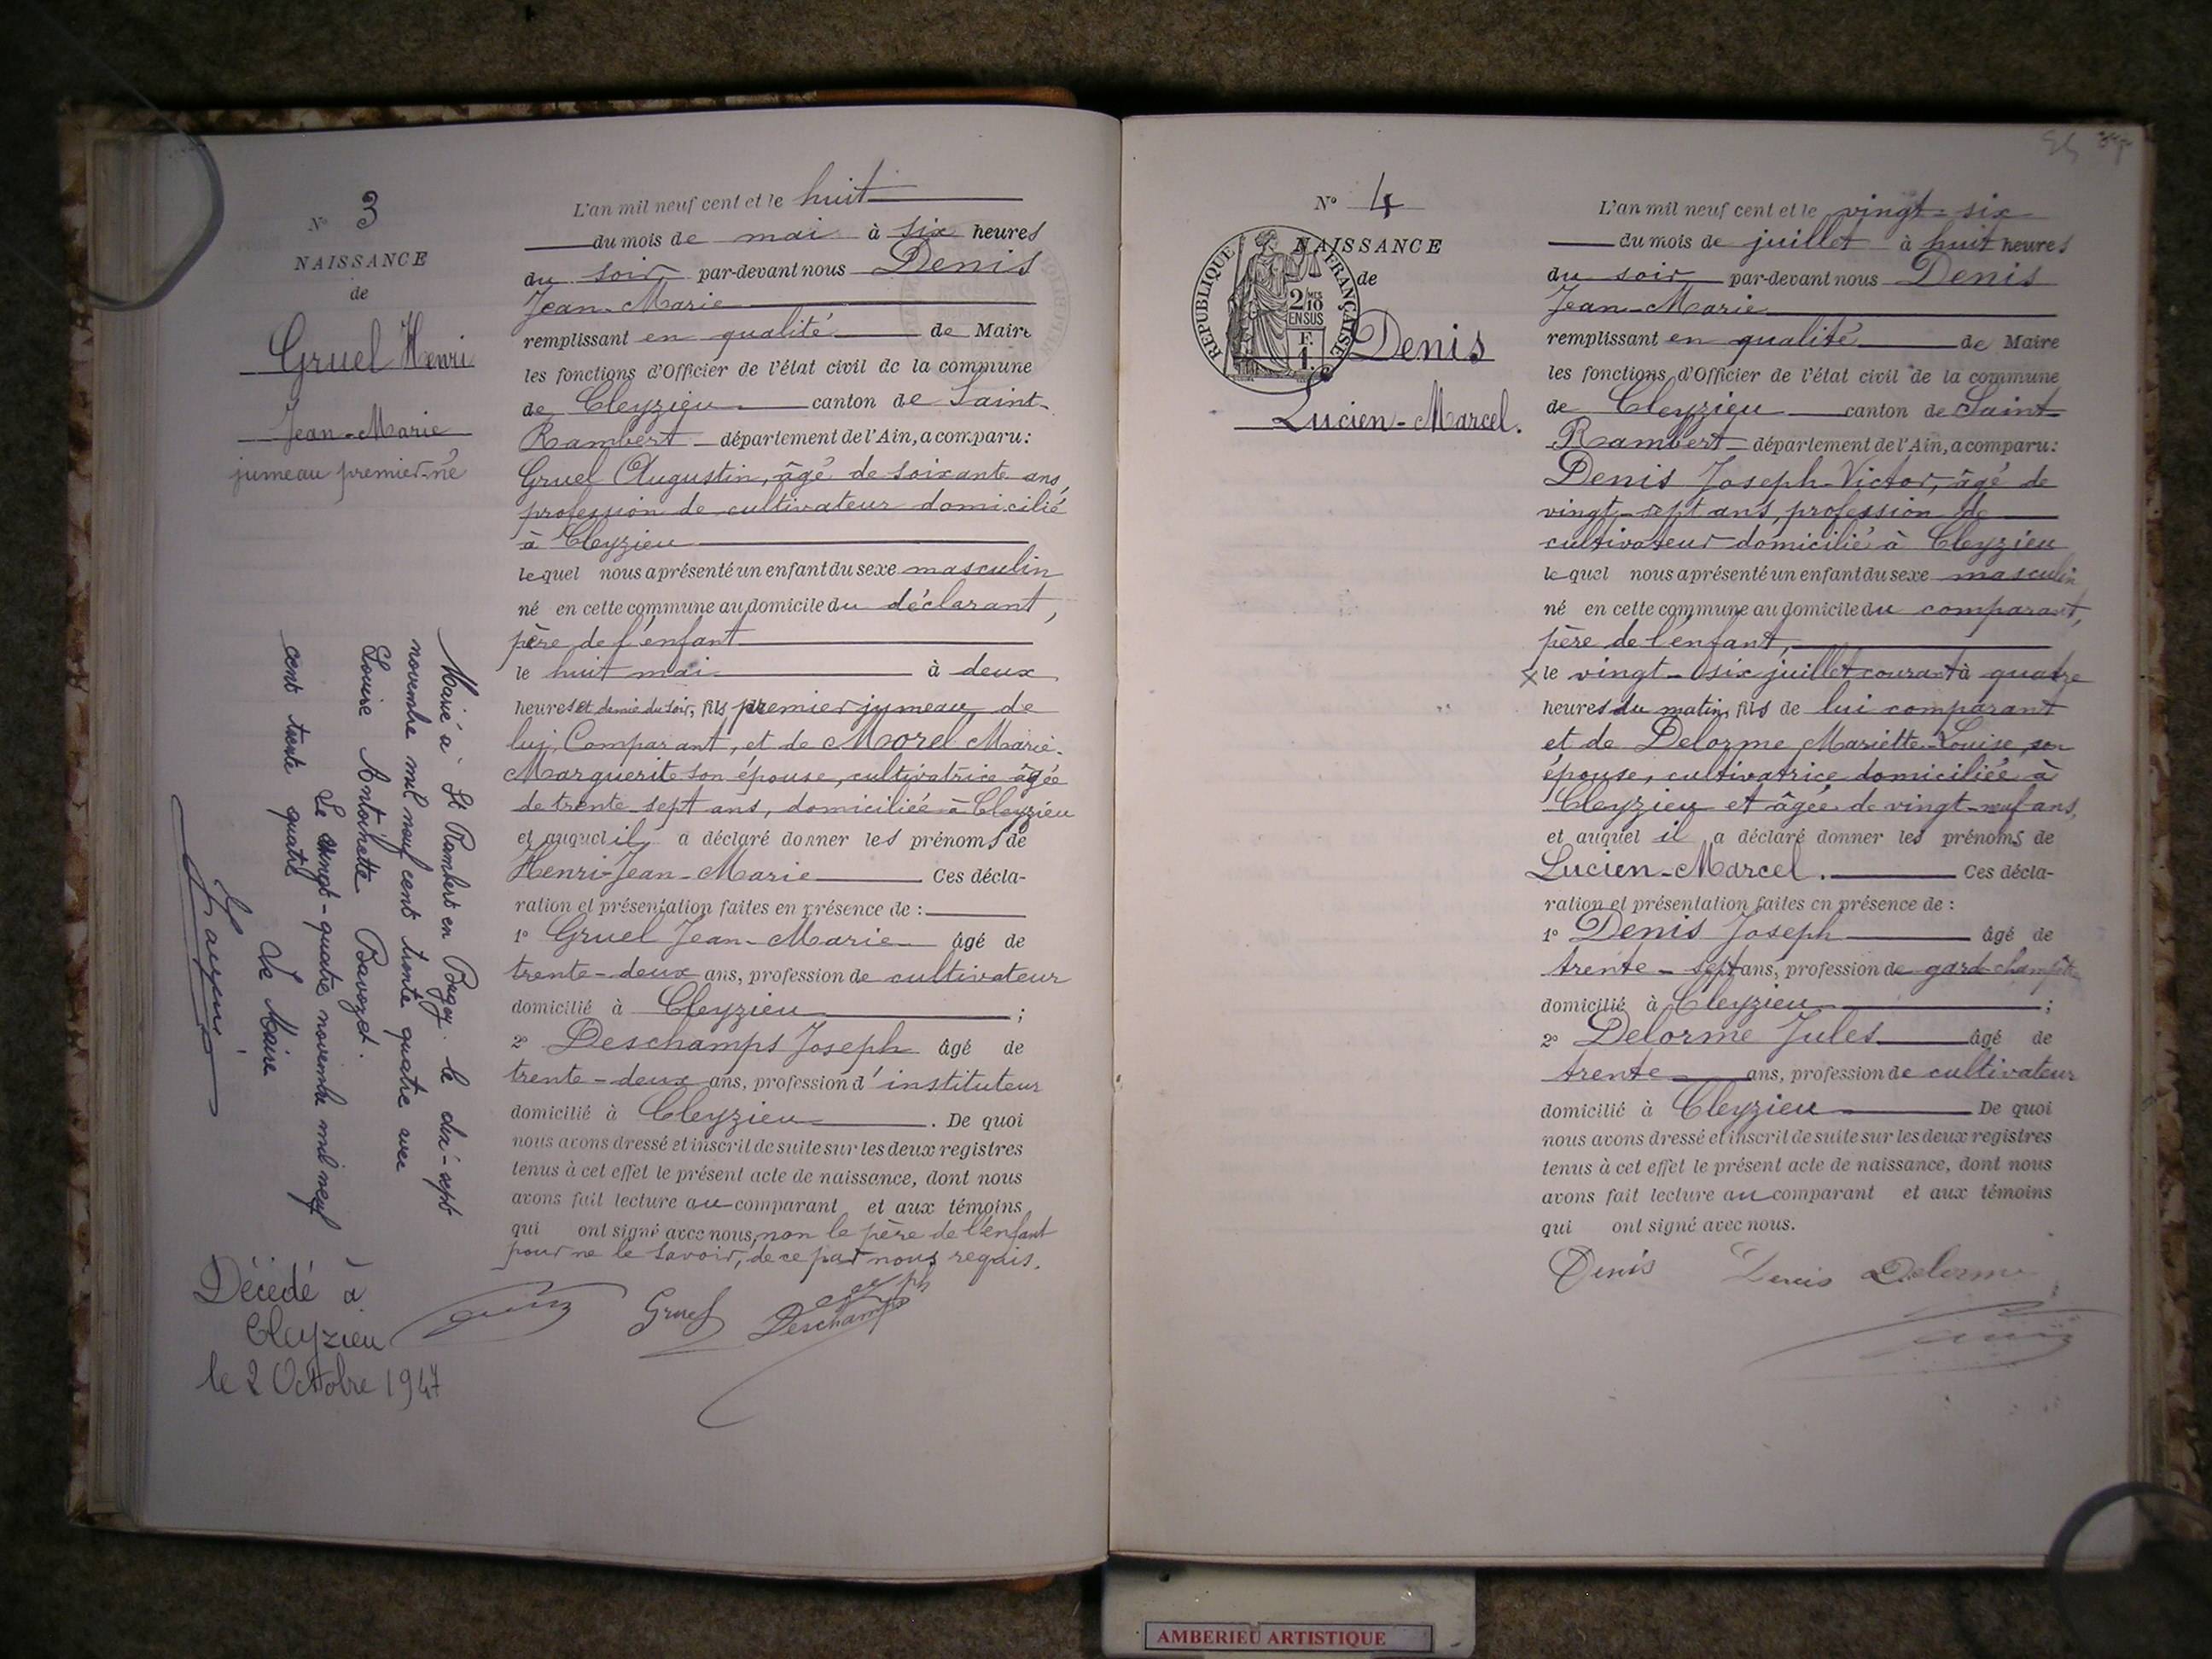 N° 3
NAISSANCE
de
Gruel Henri
Jean-Marie
jumeau premier-né
Marié à St Rambert en Bugey le dix-sept
novembre mil neuf cent trente quatre avec
Louise Antoinette Bavozet.
Le vingt-quatre novembre mil neuf
cent trente quatre
Le Maire
Décédé à
Cleyzieu
le 2 Octobre 1947
L'an mil neuf cent et le huit
du mois de mai à six heures
du soir, par-devant nous Denis
Jean-Marie
remplissant en qualité de Maire
les fonctions d'Officier de l'état civil de la commune
de Cleyzieu canton de Saint-
Rambert département de l'Ain, a comparu:
Gruel Augustin, âgé de soixante ans,
profession de cultivateur domicilié
à Cleyzieu
lequel nous a présenté un enfant du sexe masculin
né en cette commune au domicile du déclarant,
père de l'enfant
le huit mai à deux
heures et demie du soir, fils premier jumeau de
lui, Comparant, et de Morel Marie-
Marguerite son épouse, cultivatrice âgée
de trente-sept ans, domiciliée à Cleyzieu
et auquel il a déclaré donner les prénoms de
Henri-Jean-Marie Ces décla-
ration et présentation faites en présence de :
1° Gruel Jean-Marie âgé de
trente-deux ans, profession de cultivateur
domicilié à Cleyzieu ;
2° Deschamps Joseph âgé de
trente-deux ans, profession d'instituteur
domicilié à Cleyzieu . De quoi
nous avons dressé et inscrit de suite sur les deux registres
tenus à cet effet le présent acte de naissance, dont nous
avons fait lecture au comparant et aux témoins
qui ont signé avec nous, non le père de l'enfant
pour ne le savoir, de ce par nous requis.
Gruel Deschamps Joseph
N° 4
NAISSANCE
de
REPUBLIQUE FRANÇAISE
2/10 MES
EN SUS
F.
1.
Denis
Lucien-Marcel.
L'an mil neuf cent et le vingt-six
du mois de juillet à huit heures
du soir par-devant nous Denis
Jean-Marie
remplissant en qualité de Maire
les fonctions d'Officier de l'état civil de la commune
de Cleyzieu canton de Saint
Rambert département de l'Ain, a comparu:
Denis Joseph-Victor, âgé de
vingt-sept ans, profession de
cultivateur domicilié à Cleyzieu
lequel nous a présenté un enfant du sexe masculin
né en cette commune au domicile du comparant,
père de l'enfant,
le vingt-six juillet courant à quatre
heures du matin, fils de lui comparant
et de Delorme Mariette-Louise, son
épouse, cultivatrice domiciliée à
Cleyzieu et âgée de vingt-neuf ans,
et auquel il a déclaré donner les prénoms de
Lucien-Marcel. Ces décla-
ration et présentation faites en présence de :
1° Denis Joseph âgé de
trente-sept ans, profession de gard champêtre
domicilié à Cleyzieu ;
2° Delorme Jules âgé de
trente ans, profession de cultivateur
domicilié à Cleyzieu De quoi
nous avons dressé et inscrit de suite sur les deux registres
tenus à cet effet le présent acte de naissance, dont nous
avons fait lecture au comparant et aux témoins
qui ont signé avec nous.
Denis Denis Delorme
AMBERIEU ARTISTIQUE